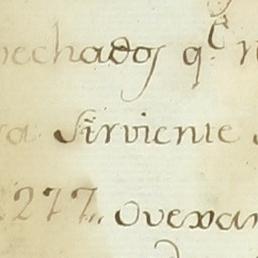 pechados q.e n
va Sirviente
277,, ovexan